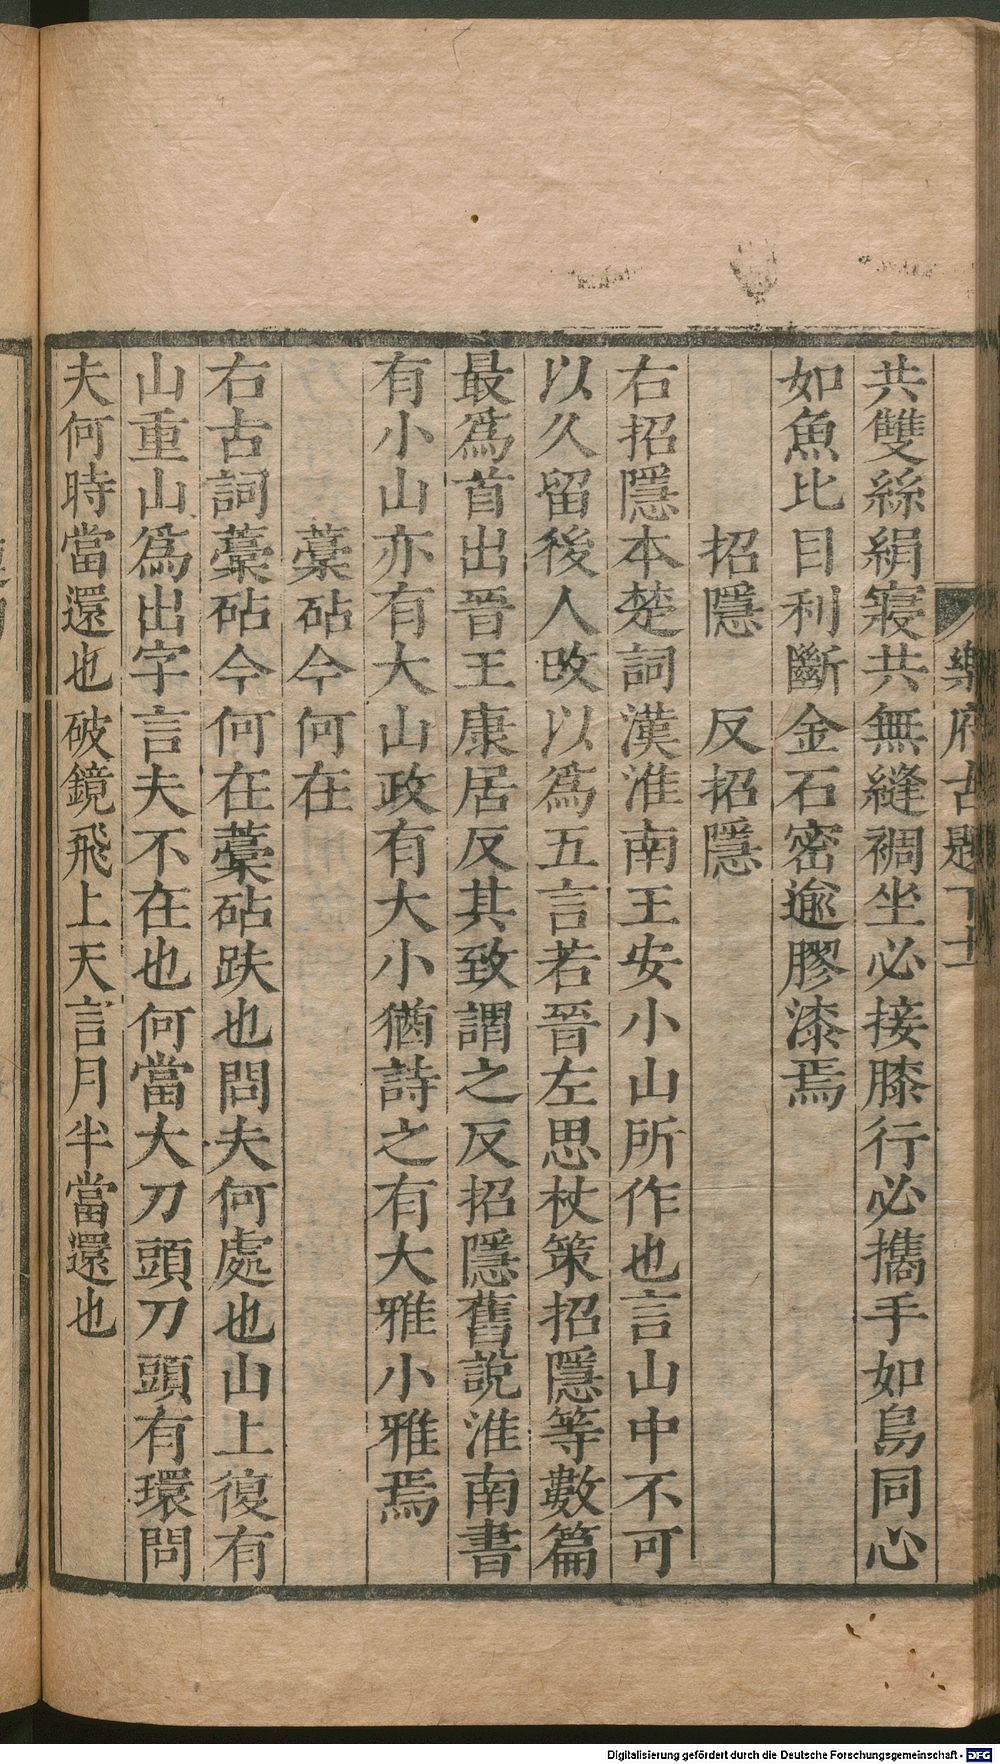 樂府古題下十
共雙絲絹寢共無縫裯坐必接膝行必攜手如鳥同心
如魚比目利斷金石密逾膠漆焉
招隱　反招隱
右招隱本楚詞漢淮南王安小山所作也言山中不可
以久留後人攺以爲五言若晉左思杖策招隱等數篇
最爲首出晉王康居反其致謂之反招隱舊說淮南書
有小山亦有大山政有大小猶詩之有大雅小雅焉
藁砧今何在
右古詞藁砧今何在藁砧趺也問夫何處也山上復有
山重山爲出字言夫不在也何當大刀頭刀頭有環問
夫何時當還也破鏡飛上天言月半當還也
Digitalisierung gefördert durch die Deutsche Forschungsgemeinschaft - DFG